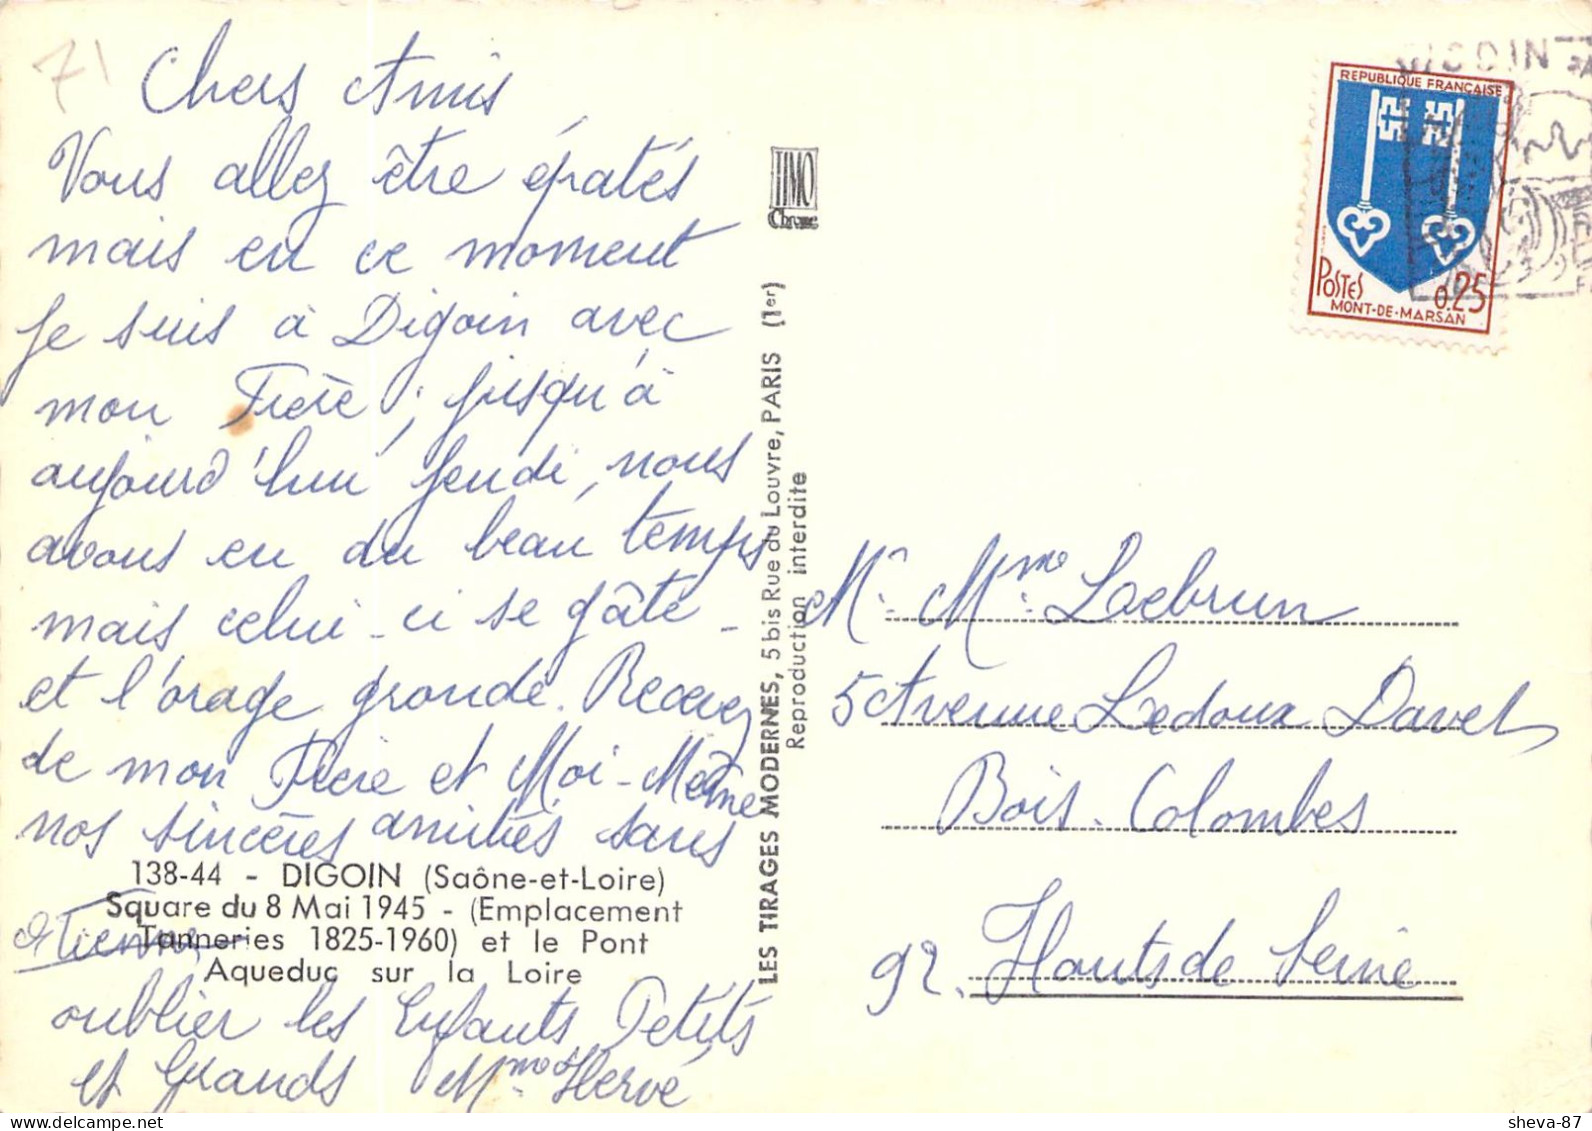 71
Chers Amis
Vous allez être épatés
mais en ce moment
je suis à Digoin avec
mon Frère, jusqu'à
aujourd'hui jeudi, nous
avons eu du beau temps
mais celui-ci se gâte -
et l'orage gronde. Recevez
de mon Frère et Moi-Même
nos sincères amitiés sans
138-44 - DIGOIN (Saône-et-Loire)
Square du 8 Mai 1945 - (Emplacement
Tanneries 1825-1960) et le Pont
Aqueduc sur la Loire
oublier les Enfants, Petits
et Grands Mme Hervé
TIMO
Chrome
LES TIRAGES MODERNES, 5 bis Rue du Louvre, PARIS (1er)
Reproduction interdite
REPUBLIQUE FRANÇAISE
POSTES
0.25
MONT-DE-MARSAN
DIGOIN
Mr Mme Laebrun
5 Avenue Ledoux Davet
Bois-Colombes
92. Hauts de Seine
sheva-87